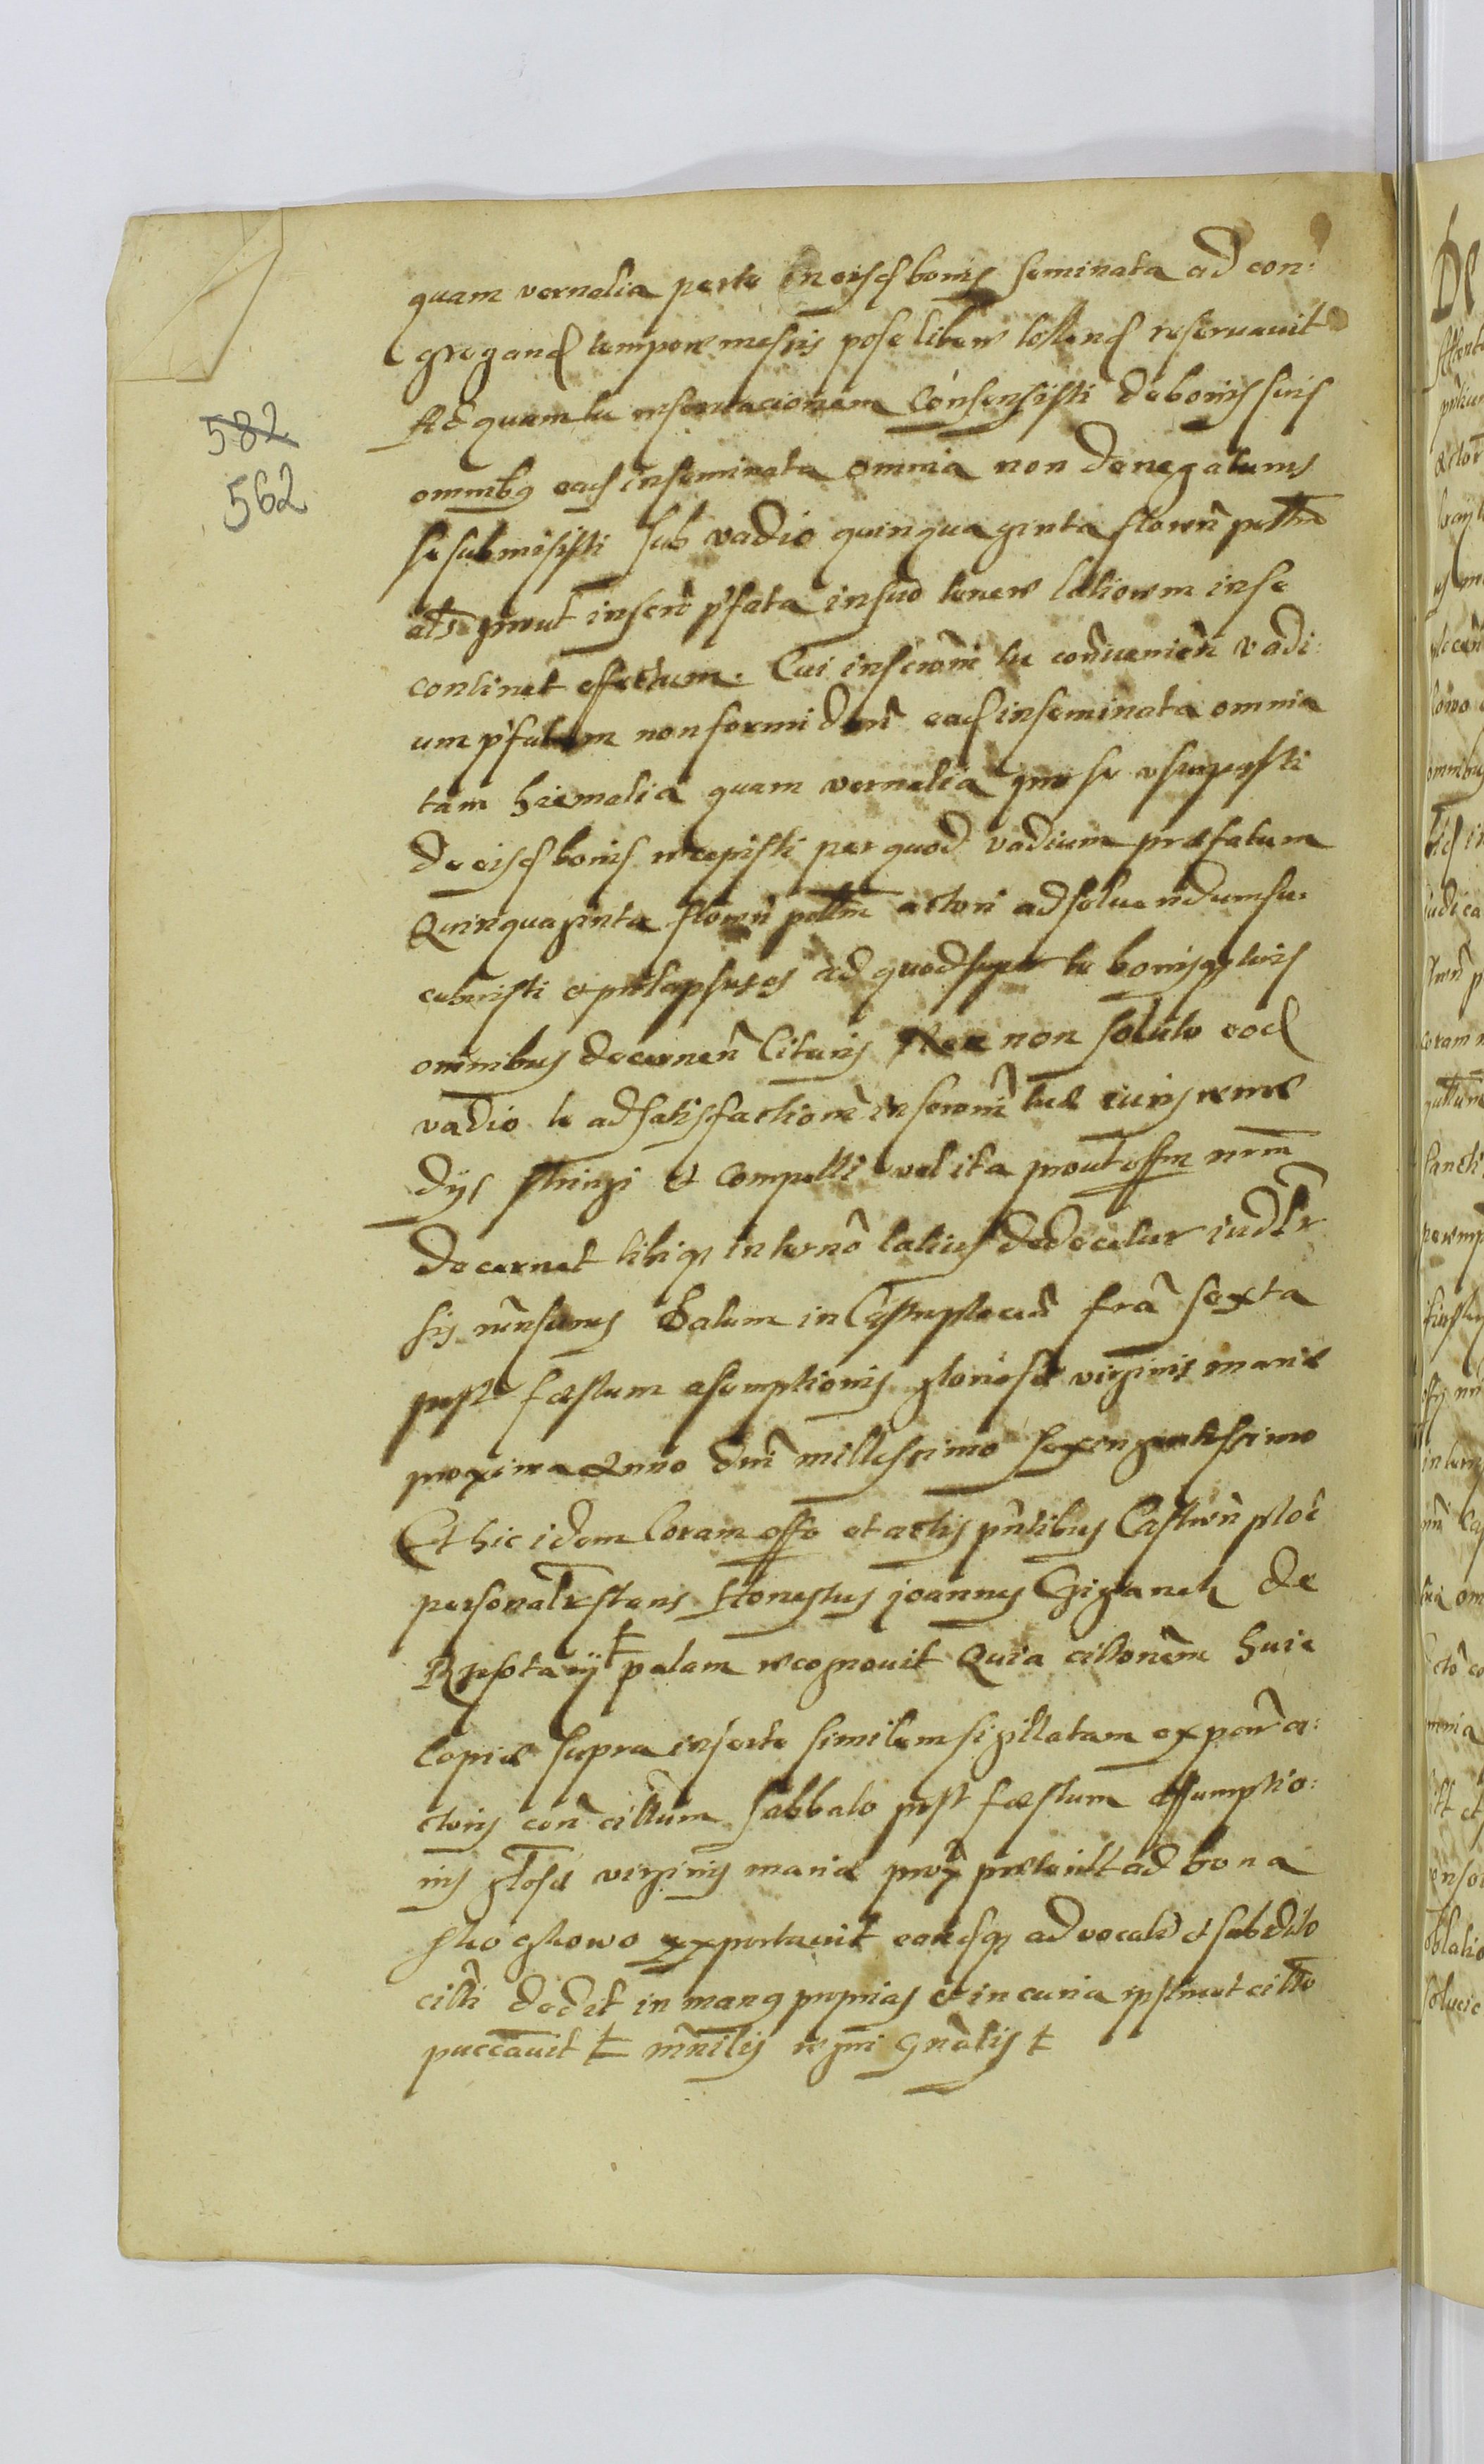 582
562
quam vernalia per te in eisd bonis seminata ad con:
gregand tempore messis pose libere tollend reseruauit
Ad quam tu inseracionem consensisti de bonis suis
omnibq ead inseminata omnia non denegaturus
se submisisti sub vadio quinquaginta floren pollm
als prout inscro pfata in suo tenore latiorem in se
continet effectum. Cui inscroni tu contrauenien vadi:
um pfatum non formidans ead inseminata omnia
tam hiemalia quam vernalia que se usurpasti
de eisd bonis recepisti per quod vadium præfatum
Quinquaginta floren pollm actori ad soluendum su:
cubuisti et prolapsus es ad quod super te bonisq tuis
omnibus decernen lituris Nec non soluto eod
vadio te ad satisfactionem inscroni tuæ iuris reme
dys stringi et compelli vel ita prout offm nrm
decernet tibiq in termo latius deducetur iudlr
sis rnsurus Datum in Castro plocen fria sexta
post festum asumptionis gloriosæ virginis mariæ
proxima Anno dni millessimo sexingentessimo
Et hic idem Coram offo et actis pntibus Castren ploc
personalr stans Honestus joannes
de
palam recognouit Quia cittonem huic
Copiæ supra inserte similem sigillatam ex parte a:
ctoris con cittum sabbato post festum Assumptio:
nis glosæ virginis mariæ prox præterit ad bona
exportauit eamsq aduocato et subdito
citti dedit in manq proprias et in curia ipsimet citto
ł mnilis regni gnalis ł